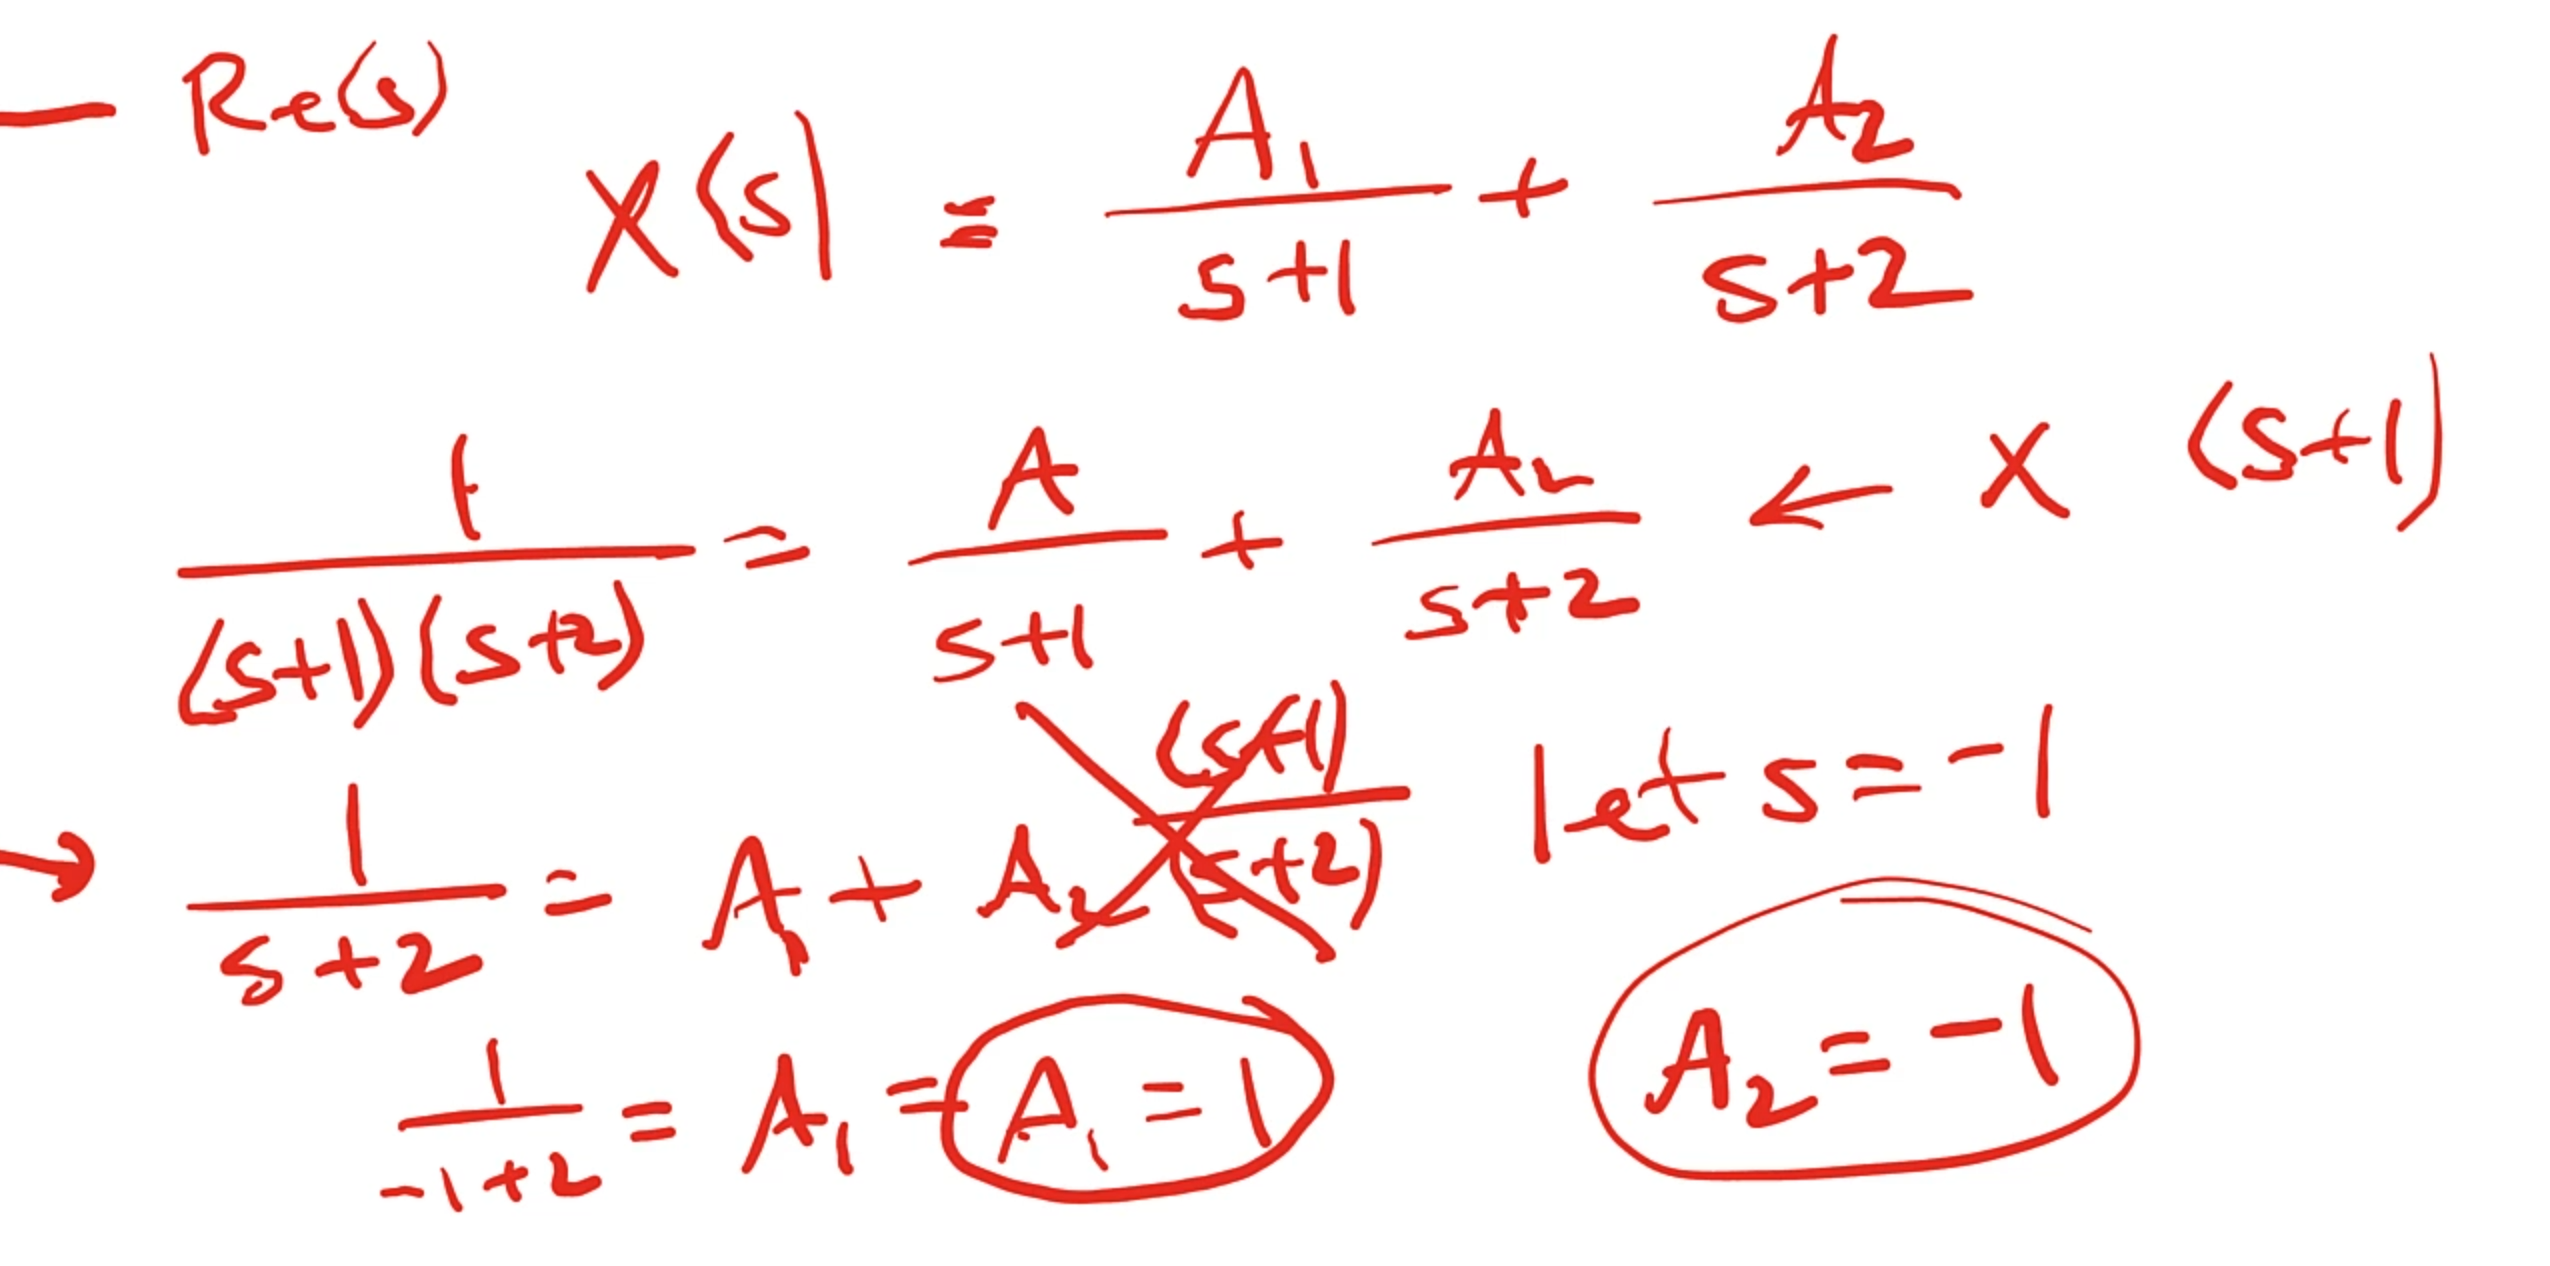 Re(s)
X(s) = A₁/(s+1) + A₂/(s+2)
1/((s+1)(s+2)) = A/(s+1) + A₂/(s+2) ← x (s+1)
→ 1/(s+2) = A₁ + A₂ (s+1)/(s+2) let s = -1
1/(-1+2) = A₁ = A₁ = 1
A₂ = -1